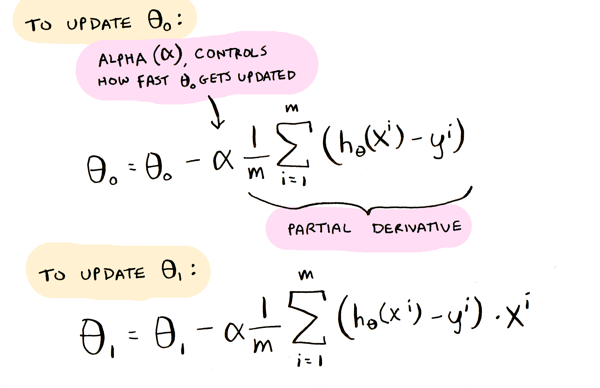 TO UPDATE θ₀:
ALPHA (α), CONTROLS
HOW FAST θ₀ GETS UPDATED
θ₀ = θ₀ - α 1/m ∑ᵢ₌₁ᵐ (hθ(xⁱ) - yⁱ)
PARTIAL DERIVATIVE
TO UPDATE θ₁:
θ₁ = θ₁ - α 1/m ∑ᵢ₌₁ᵐ (hθ(xⁱ) - yⁱ) · xⁱ